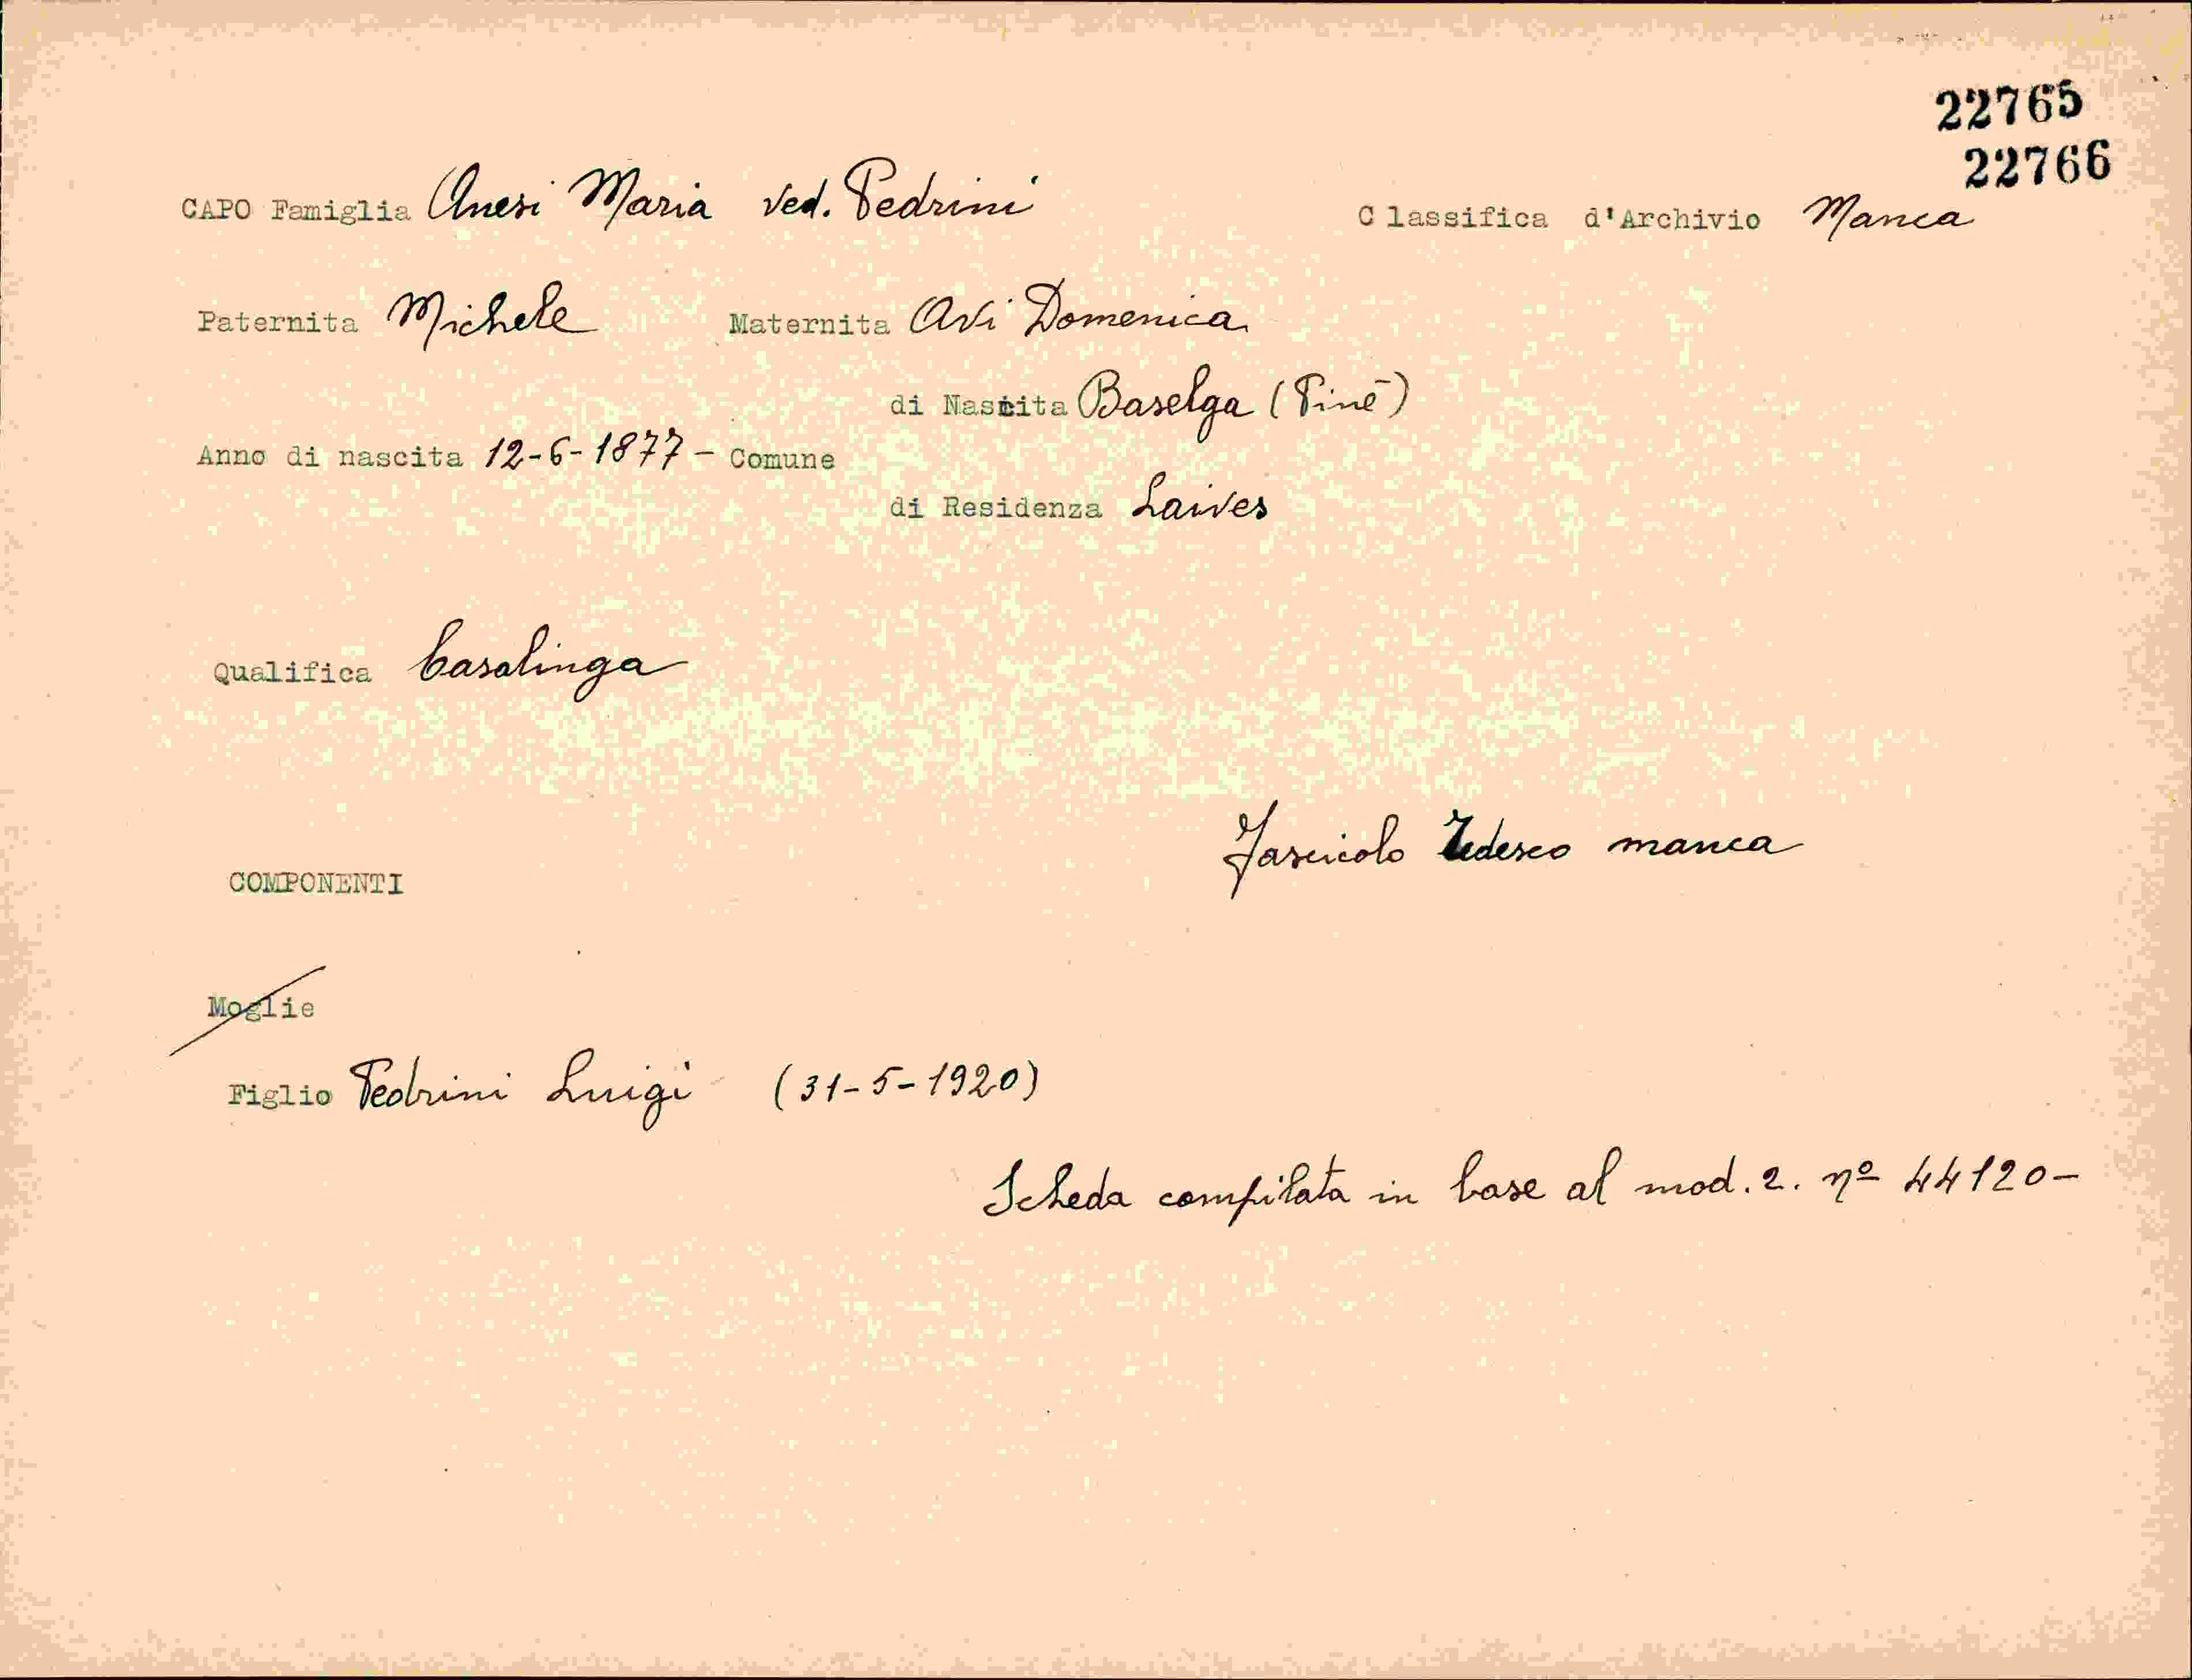 22765
22766
CAPO Famiglia Anesi Maria ved. Pedrini Classifica d'Archivio Manca
Paternita Michele Maternita Avi Domenica
di Nascita Baselga (Piné)
Anno di nascita 12-6-1877 - Comune
di Residenza Laives
Qualifica Casalinga
Fascicolo Tedesco manca
COMPONENTI
Moglie
Figlio Pedrini Luigi (31-5-1920)
Scheda compilata in base al mod. 2. nº 44120-